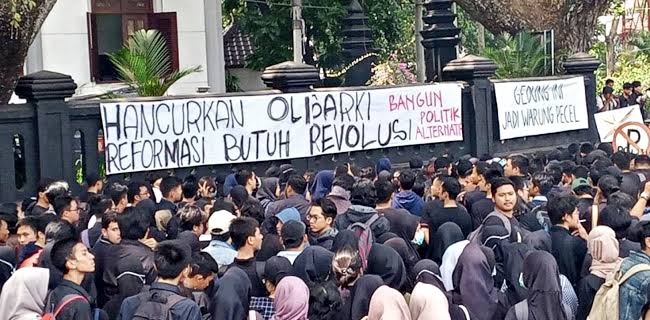 HANCURKAN OLIGARKI
REFORMASI BUTUH REVOLUSI
BANGUN
POLITIK
ALTERNATIF
GEDUNG INI
JADI WARUNG PECEL